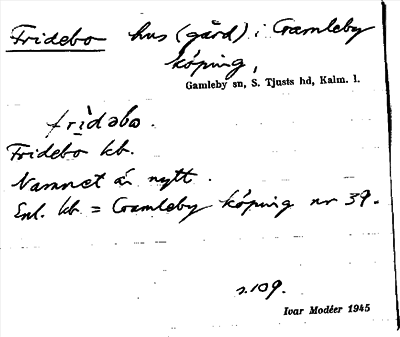 Fridebo hus (gård) i Gamleby
köping,
Gamleby sn, S. Tjusts hd, Kalm. l.
frìdəbo.
Fridebo kb.
Namnet är nytt.
Enl. kb = Gamleby köping nr 39.
s. 109.
Ivar Modéer 1945